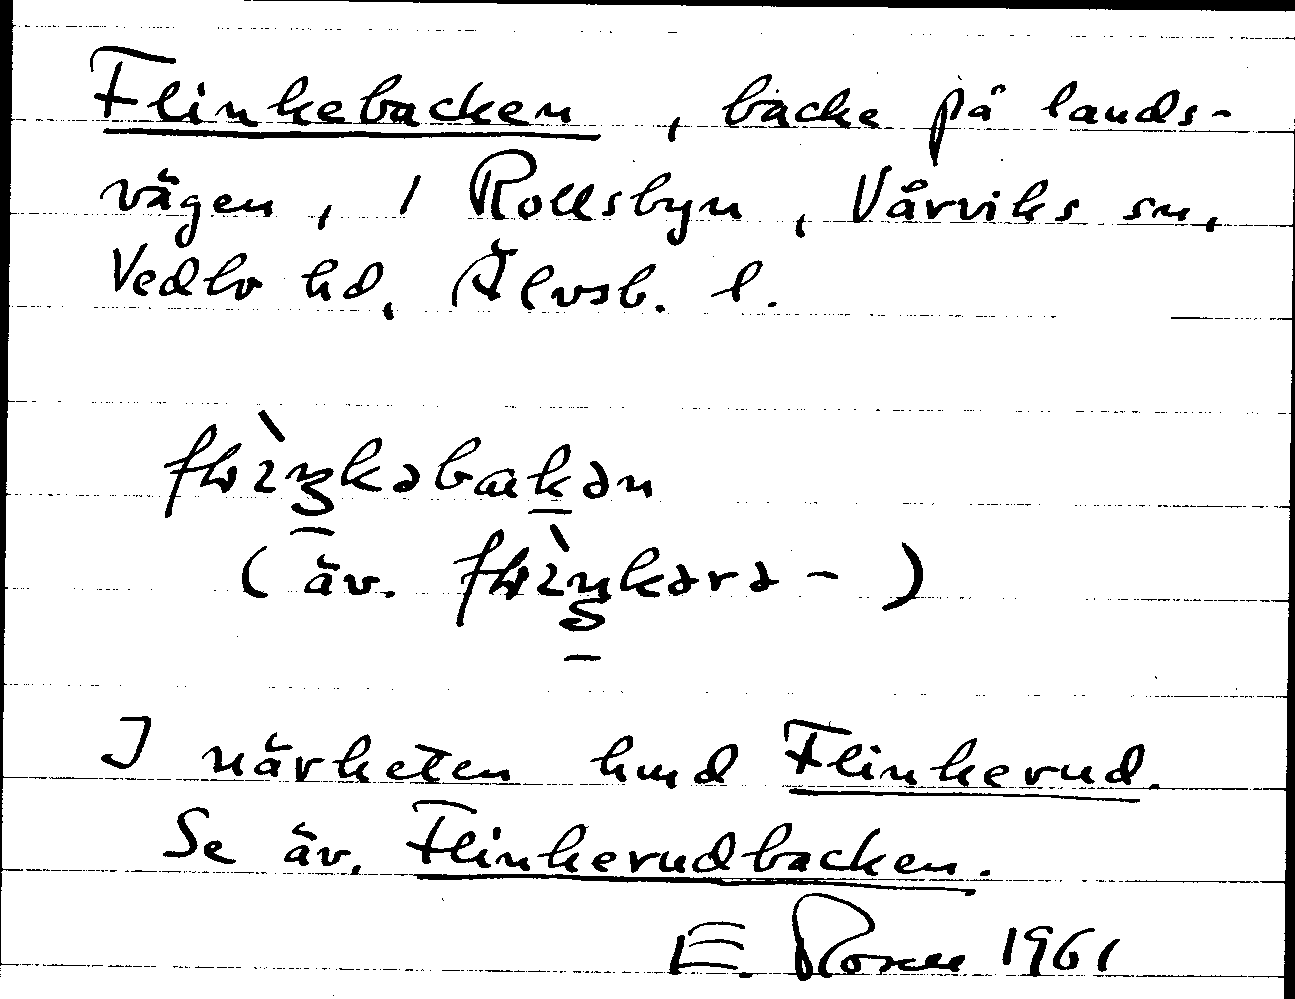 Flinkebacken, backe på lands-
vägen, 1 Rollsbyn, Vårviks sn,
Vedbo hd, Älvsb. l.
(äv.
I närheten lund Flinkerud.
Se äv. Flinkerudbacken.
E. Rosell 1961